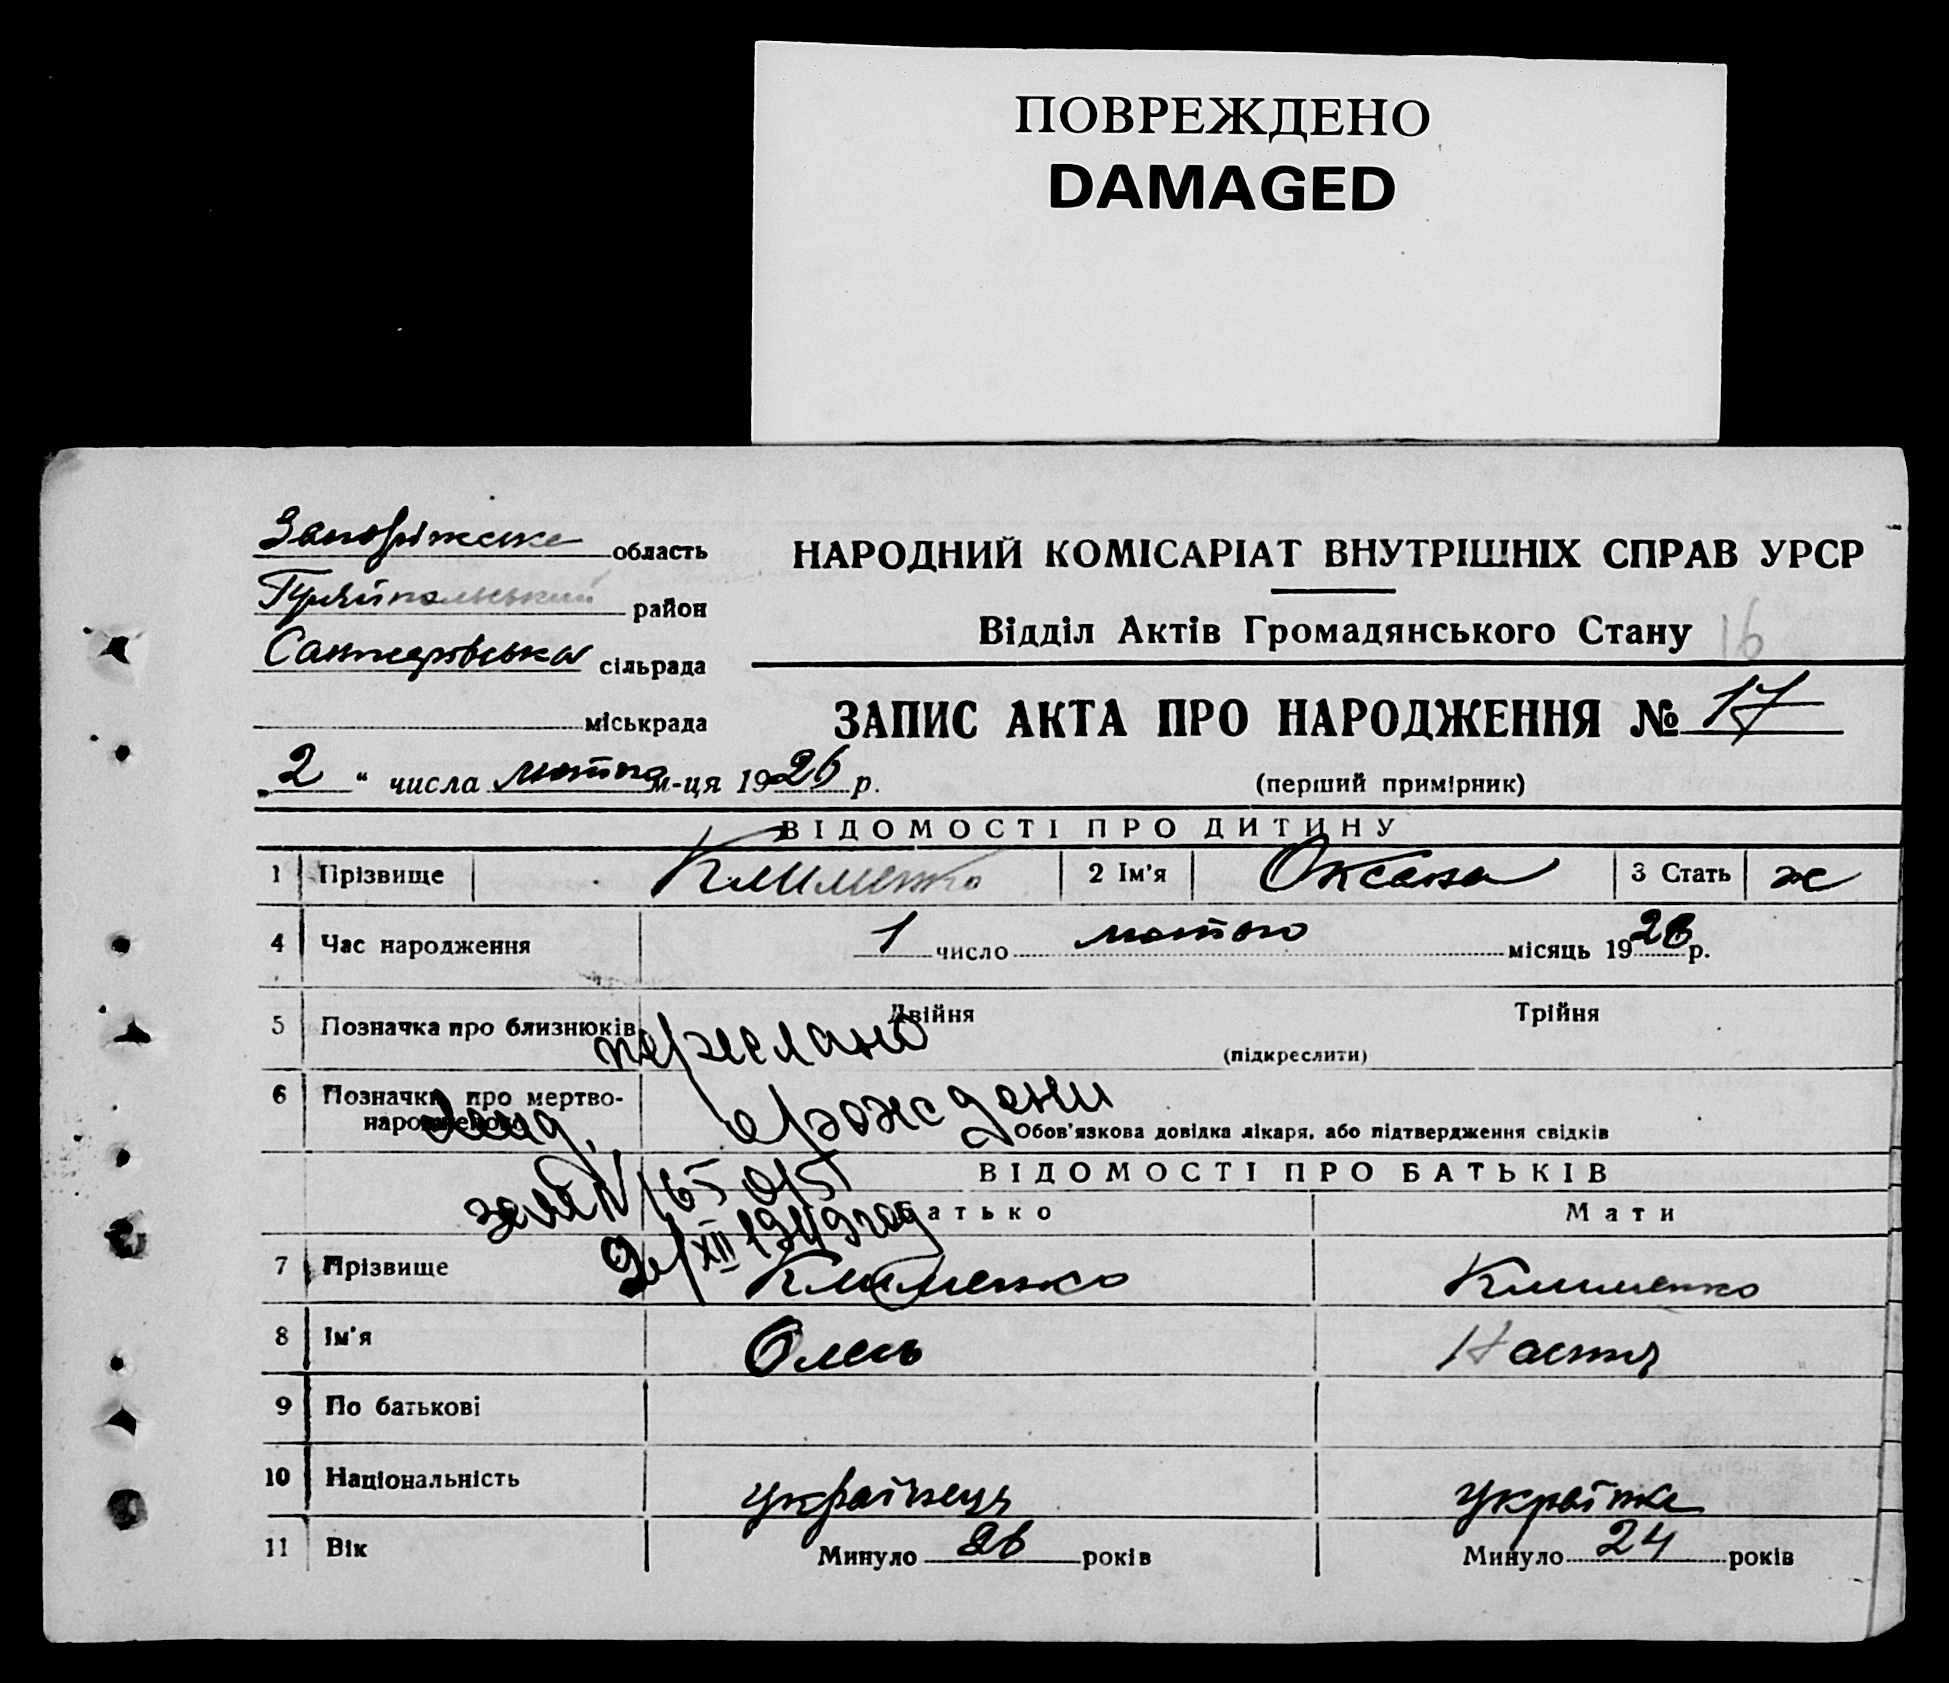 ПОВРЕЖДЕНО
DAMAGED
Запоріжське область
Гуляйпольський район
Санжарівська сільрада
міськрада
НАРОДНИЙ КОМІСАРІАТ ВНУТРІШНІХ СПРАВ УРСР
Відділ Актів Громадянського Стану 16
ЗАПИС АКТА ПРО НАРОДЖЕННЯ № 17
„ 2 “ числа лютого м-ця 1926 р.
(перший примірник)
ВІДОМОСТІ ПРО ДИТИНУ
1 Прізвище Клименко 2 Ім'я Оксана 3 Стать ж
4 Час народження 1 число лютого місяць 1926 р.
5 Позначка про близнюків Двійня Трійня
(підкреслити)
переслано
6 Позначка про мертво-
народженого
Обов'язкова довідка лікаря, або підтвердження свідків
о рождени
ВІДОМОСТІ ПРО БАТЬКІВ
Батько Мати
XII 1949 год
7 Прізвище Клименко Клименко
8 Ім'я Олесь Настя
9 По батькові
10 Національність українець українка
11 Вік Минуло 26 років Минуло 24 років